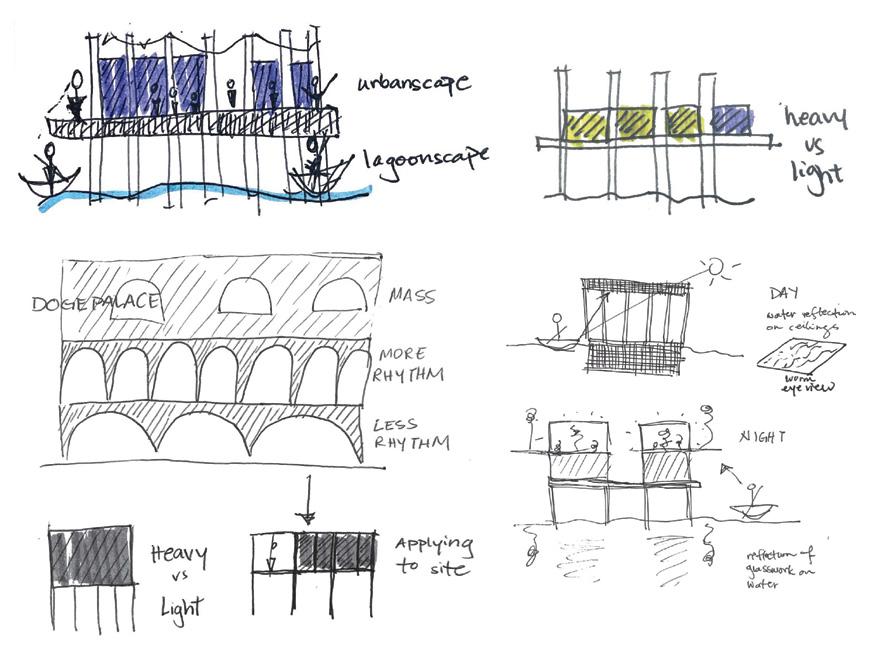 urbanscape
lagoonscape
heavy
vs
light
DOGE PALACE
MASS
MORE
RHYTHM
LESS
RHYTHM
DAY
water reflection
on ceilings
worm
eye view
NIGHT
reflection of
glasswork on
water
Heavy
vs
Light
Applying
to site